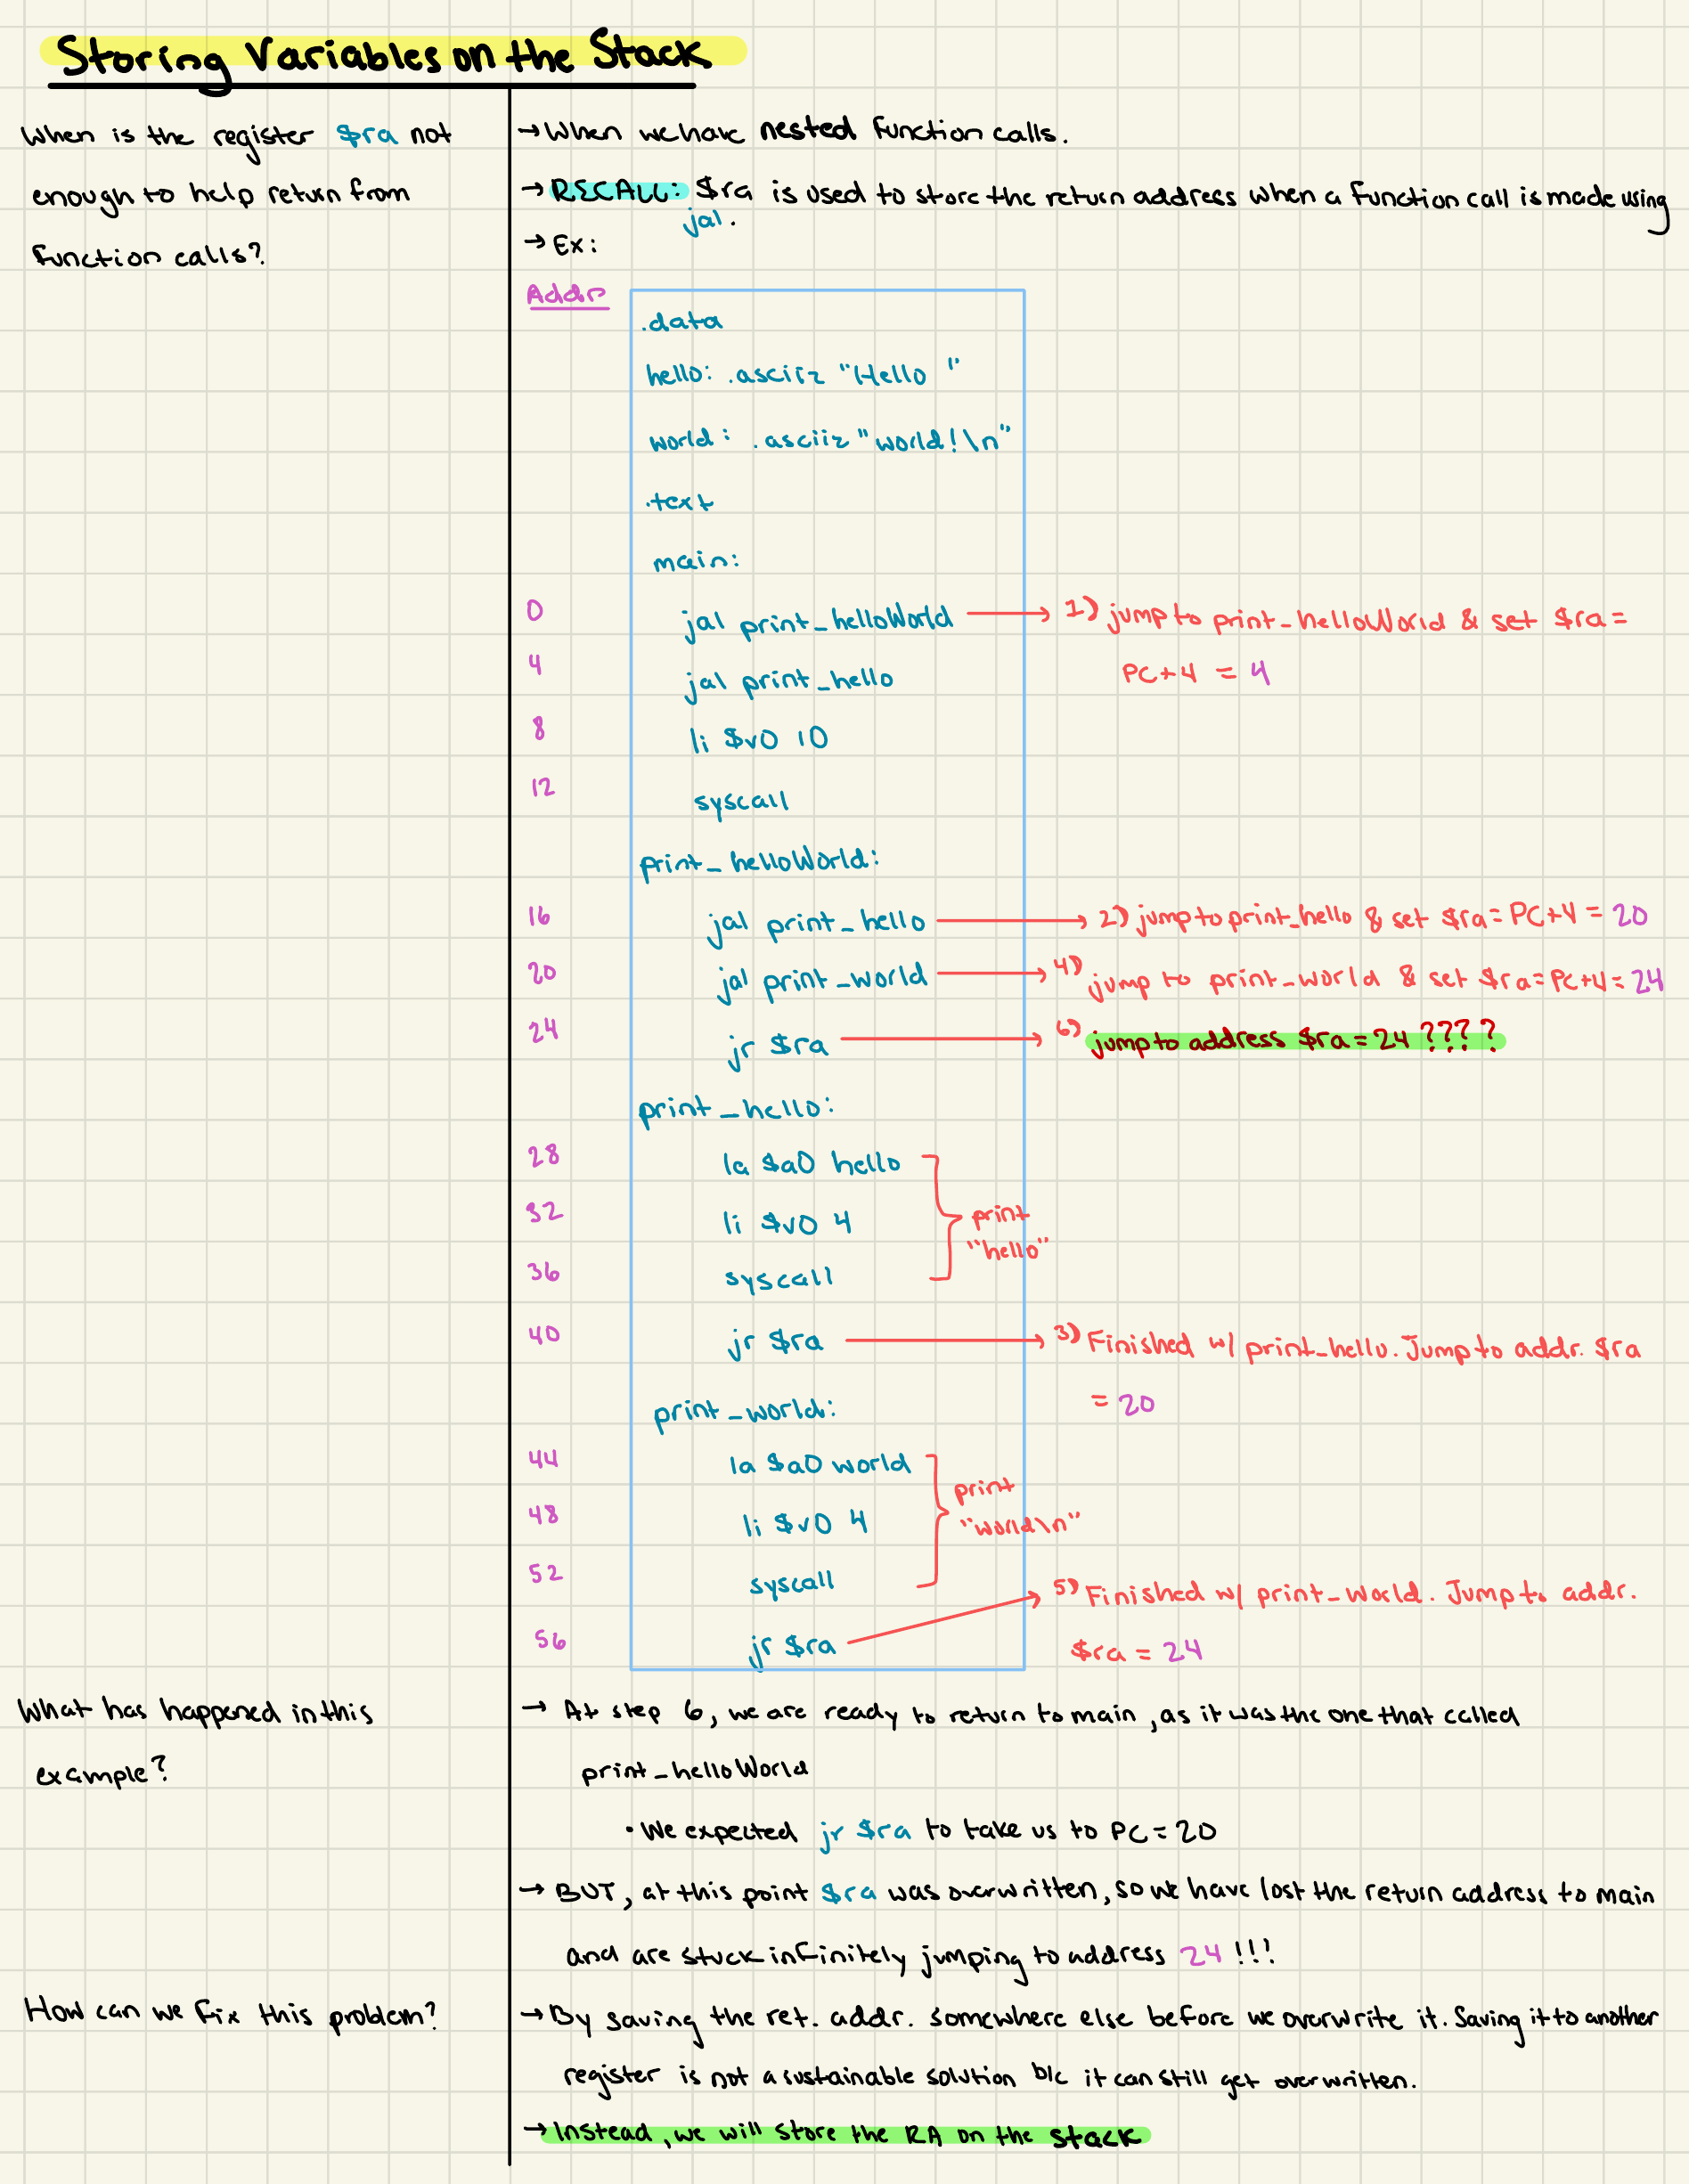 Storing Variables on the Stack
When is the register $ra not
enough to help return from
function calls?
→ When we have nested function calls.
→ RECALL: $ra is used to store the return address when a function call is made using
jal.
→ Ex:
Addr
.data
hello: .asciiz "Hello "
world: .asciiz "world!\n"
.text
main:
0 jal print_helloWorld → 1) jump to print_helloWorld & set $ra =
4 jal print_hello PC+4 = 4
8 li $v0 10
12 syscall
print_helloWorld:
16 jal print_hello → 2) jump to print_hello & set $ra = PC+4 = 20
20 jal print_world → 4) jump to print_world & set $ra = PC+4 = 24
24 jr $ra → 6) jump to address $ra = 24 ????
print_hello:
28 la $a0 hello
32 li $v0 4 print
"hello"
36 syscall
40 jr $ra → 3) Finished w/ print_hello. Jump to addr. $ra
= 20
print_world:
44 la $a0 world
print
48 li $v0 4 "world\n"
52 syscall
→ 5) Finished w/ print_world. Jump to addr.
56 jr $ra $ra = 24
What has happened in this
example?
→ At step 6, we are ready to return to main, as it was the one that called
print_helloWorld
• We expected jr $ra to take us to PC = 20
→ BUT, at this point $ra was overwritten, so we have lost the return address to main
and are stuck infinitely jumping to address 24 !!!
How can we fix this problem?
→ By saving the ret. addr. somewhere else before we overwrite it. Saving it to another
register is not a sustainable solution b/c it can still get overwritten.
→ Instead, we will store the RA on the stack